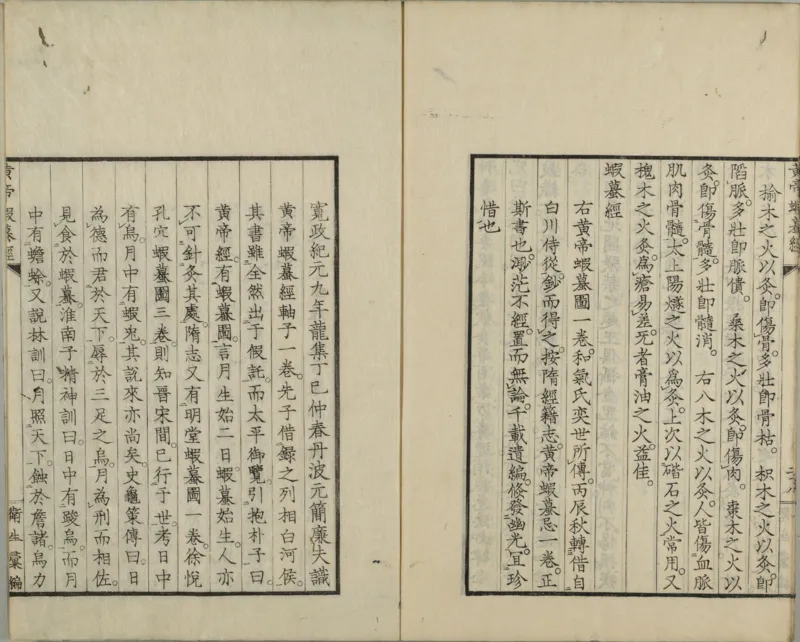 黃帝蝦蟇經
榆木之火以灸。卽傷骨。多壯卽骨枯。 枳木之火以灸。卽
陷脈。多壯卽脈僨。 桑木之火以灸。卽傷肉。 棗木之火以
灸。卽傷骨髓。多壯卽髓消。 右八木之火以灸。人皆傷血脈
肌肉骨髓。太上陽燧之火以爲灸。上次以䃈石之火常用。又
槐木之火灸。爲瘡易差。无者膏油之火。益佳。
蝦蟇經
右黃帝蝦蟇圖一卷。和氣氏奕世所傳。丙辰秋轉借自
白川侍從。鈔而得之。按隋經籍志。黃帝蝦蟇忌一卷。正
斯書也。渺茫不經。置而無論。千載遺編。倐發幽光。宜珍
惜也
寬政紀元九年龍集丁巳仲春丹波元簡廉夫識
黃帝蝦蟇經軸子一卷。先子借錄之列相白河侯。
其書雖全然出于假託。而太平御覽。引抱朴子曰。
黃帝經。有蝦蟇圖。言月生始二日。蝦蟇始生。人亦
不可針灸其處。隋志又有明堂蝦蟇圖一卷。徐悅
孔穴蝦蟇圖三卷。則知晉宋間。已行于世。考日中
有烏。月中有蝦兎。其說來亦尚矣。史龜策傳曰。日
為德而君於天下。辱於三足之烏。月為刑而相佐。
見食於蝦蟇。淮南子精神訓曰。日中有踆烏。而月
中有蟾蜍。又說林訓曰。月照天下。蝕於詹諸。烏力
黃帝蝦蟇經
衛生彙編